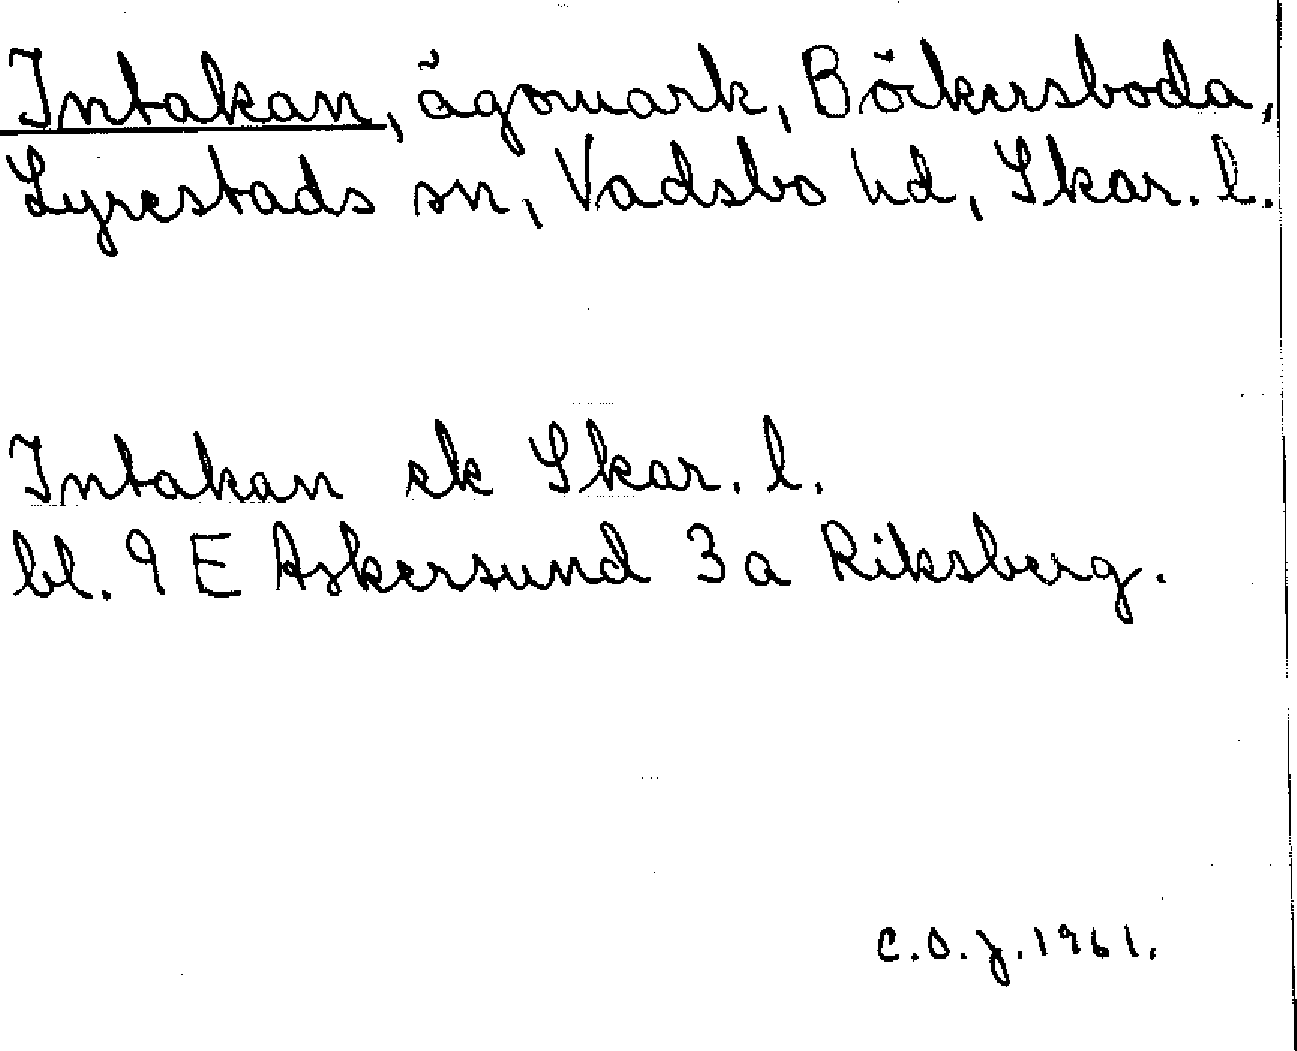 Intakan, ägomark, Bökersboda,
Lyrestads sn, Vadsbo hd, Skar. l.
Intakan ek Skar. l.
bl. 9 E Askersund 3a Riksberg.
C.O.J. 1961.